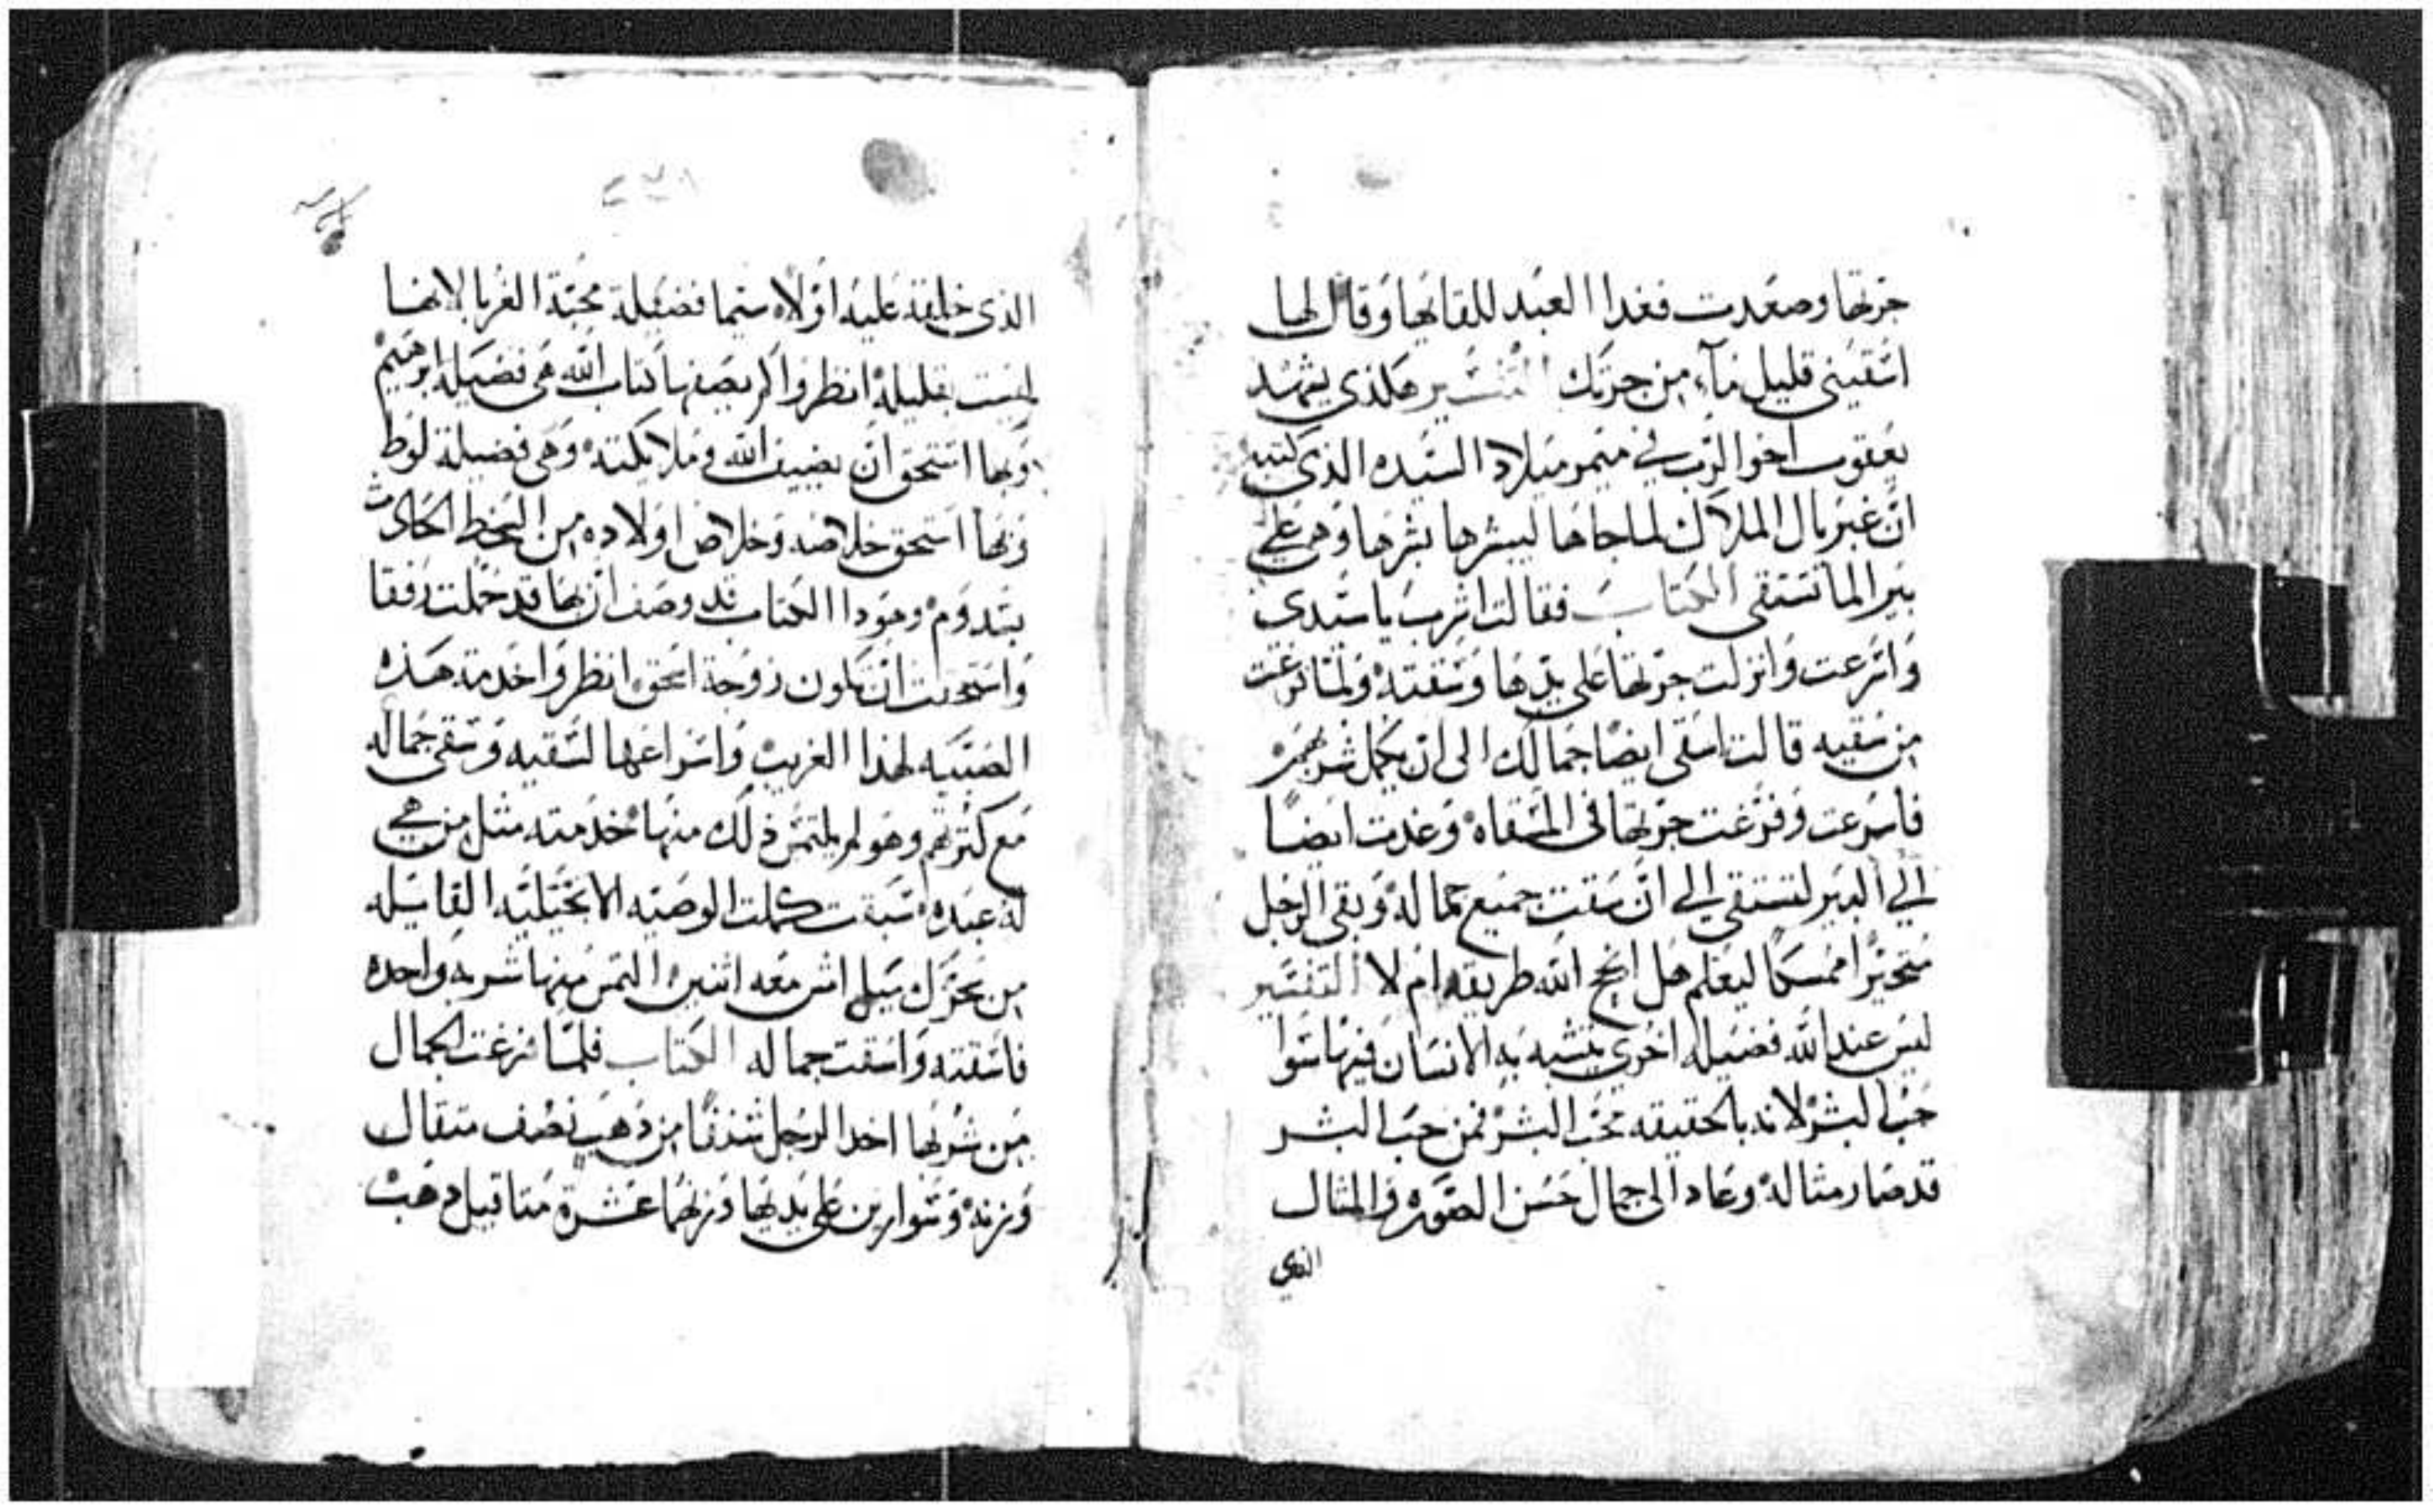 جرتها وصعدت فغدا العبد للقايها وقال لها
اسقيني قليل مآء من جرتك التفسير هكذي يشهد
يعقوب اخوا الرب في ميمر ميلاد السيده الذي كتبه
ان غبريال الملاك لما جاها ليبشرها بشرها وهي علي
بير الما تستقي الكتاب فقالت اشرب يا سيدي
واسرعت وانزلت جرتها علي يدها وسقته ولما فرغت
من سقيه قالت اسقي ايضا جمالك الى ان يكمل شربهم
فاسرعت وفرغت جرتها في المسقاه وغدت ايضا
الي البير لتستقي الي ان سقت جميع جماله وبقي الرجل
متحيرا ممسكا ليعلم هل انجح الله طريقه ام لا التفسير
ليس عند الله فضيله اخري يتشبه به الانسان فيها سوا
حب البشر لانه بالحقيقه محب البشر فمن حب البشر
قد صار مثاله وعاد الى جمال حسن الصوره والمثال
الذي
الذي خلقه عليه اولا سيما فضيلة محبة الغربا لانها
ليست بقليله انظروا كم يصفها كتاب الله هي فضيلة ابرهيم
وبها استحق ان يضيف الله وملايكته وهي فضيلة لوط
وبها استحق خلاصه وخلاص اولاده من السخط الحادث
بسدوم وهودا الكتاب قد وصف ان بها قد حملت رفقا
واستحقت ان تكون زوجة اسحق انظروا خدمة هذه
الصبيه لهذا الغريب واسراعها لسقيه وسقي جماله
مع كثرتهم وهو لم يلتمس ذلك منها خدمته مثل من هي
له عبده سبقت كملت الوصيه الانجيليه القايله
من سخرك ميل امش معه اثنين التمس منها شربه واحده
فاسقته واسقت جماله الكتاب فلما فرغت الجمال
من شربها اخد الرجل شنفا من ذهب نصف مثقال
وزنه وسوارين علي يديها وزنهما عشرة مثاقيل دهب